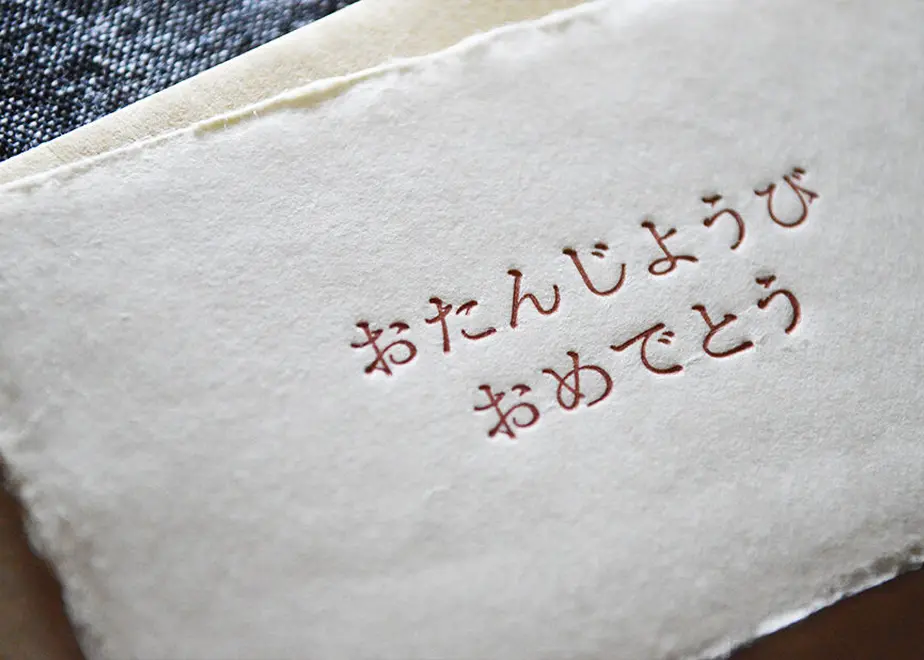 おたんじようび
おめでとう